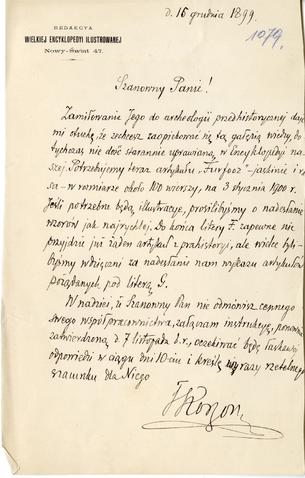 d. 16 grudnia 1899.
1079.
REDAKCYA
WIELKIEJ ENCYKLOPEDYI ILUSTROWANEJ
Nowy-Świat 47.
Szanowny Panie!
Zamiłowanie Jego do archeologii przedhistorycznej daje
mi otuchę, że zechcesz zaopiekować się tą gałęzią wiedzy, do
tychczas nie dość starannie uprawianą w Encyklopedyi na
szej. Potrzebujemy teraz artykułu "Furfooz" - jaskinie i ra
sa - w rozmiarze około 100 wierszy, na 3 stycznia 1900 r.
Jeśli potrzebne będą illustracye, prosilibyśmy o nadesłanie
wzorów jak najrychlej. Do końca litery F. zapewne nie
przyjdzie już żaden artykuł z prahistoryi, ale wielce byli-
byśmy wdzięczni za nadesłanie nam wykazu artykułów
pożądanych pod literą G.
W nadziei, że Szanowny Pan nie odmówisz cennego
swego współpracownictwa, załączam instrukcyę, ponownie
zatwierdzoną d. 7 listopada b.r., oczekiwać będę łaskawej
odpowiedzi w ciągu dni 10-iu i kreślę wyrazy rzetelnego
szacunku dla Niego
TKorzon